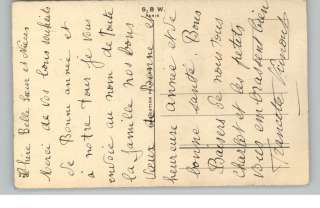 Chère Belle Sœur et
Merci de vos bons souhaits
de Bonne année et
à notre tour je vous
envoie au nom de toute
la famille nos bons
vœux de bonne et
heureuse année et de
bonne santé. Bons
Baisers de nous tous
Charlot et les petits
vous embrassent bien
G.B.W.
PARIS